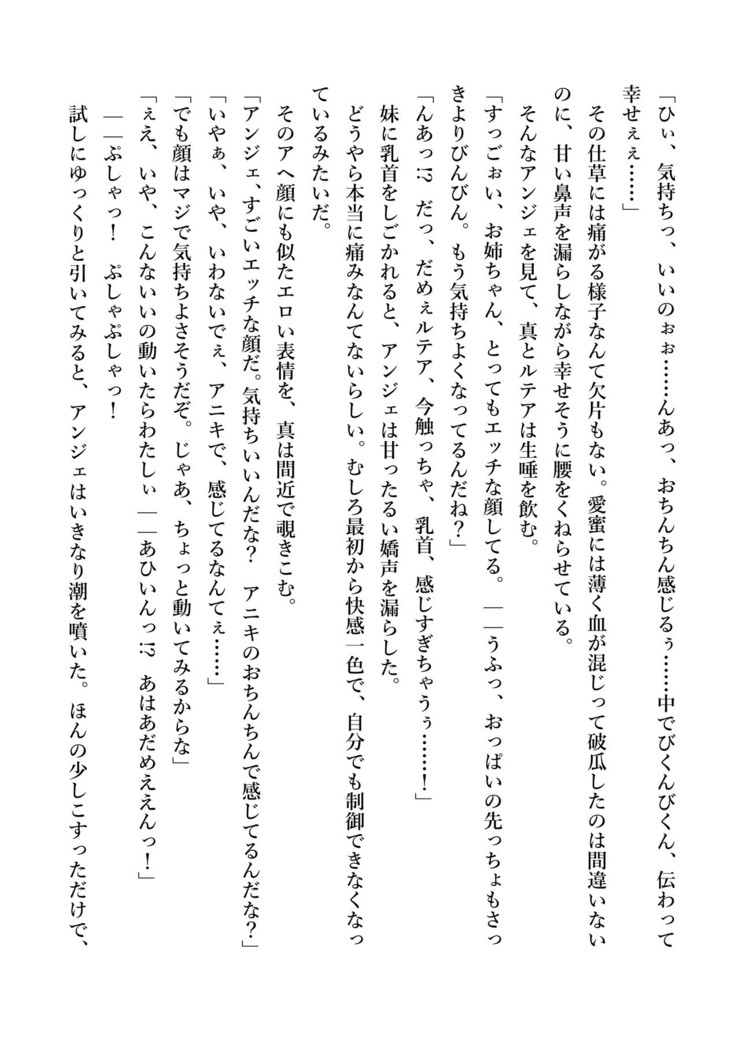 「ひぃ、気持ちっ、いいのぉぉ……んあっ、おちんちん感じるぅ……中でびくんびくん、伝わって
幸せぇぇ……」
その仕草には痛がる様子なんて欠片もない。愛蜜には薄く血が混じって破瓜したのは間違いない
のに、甘い鼻声を漏らしながら幸せそうに腰をくねらせている。
そんなアンジェを見て、真とルテアは生唾を飲む。
「すっごぉい、お姉ちゃん、とってもエッチな顔してる。――うふっ、おっぱいの先っちょもさっ
きよりびんびん。もう気持ちよくなってるんだね？」
「んあっ!?　だっ、だめぇルテア、今触っちゃ、乳首、感じすぎちゃうぅ……！」
妹に乳首をしごかれると、アンジェは甘ったるい嬌声を漏らした。
どうやら本当に痛みなんてないらしい。むしろ最初から快感一色で、自分でも制御できなくなっ
ているみたいだ。
そのアヘ顔にも似たエロい表情を、真は間近で覗きこむ。
「アンジェ、すごいエッチな顔だ。気持ちいいんだな？　アニキのおちんちんで感じてるんだな？」
「いやぁ、いや、いわないでぇ、アニキで、感じてるなんてぇ……」
「でも顔はマジで気持ちよさそうだぞ。じゃあ、ちょっと動いてみるからな」
「ぇえ、いや、こんないいの動いたらわたしぃ――あひいんっ!?　あはあだめええんっ！」
――ぷしゃっ！　ぷしゃぷしゃっ！
試しにゆっくりと引いてみると、アンジェはいきなり潮を噴いた。ほんの少しこすっただけで、